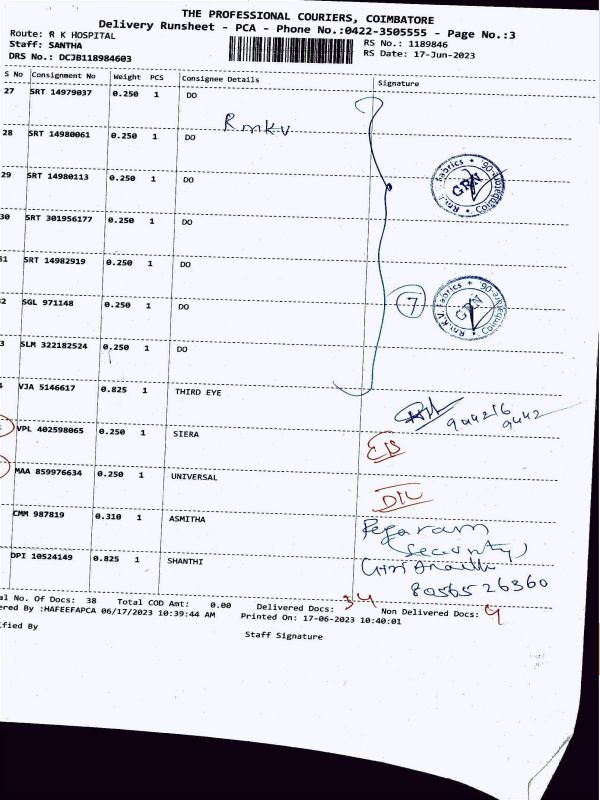 THE PROFESSIONAL COURIERS, COIMBATORE
Delivery Runsheet - PCA - Phone No.:0422-3505555 - Page No.:3
Route: R K HOSPITAL
RS No.: 1189846
Staff: SANTHA
RS Date: 17-Jun-2023
DRS No.: DCJB118984603
S No Consignment No Weight PCS Consignee Details Signature
27 SRT 14979037 0.250 1 DO
RMKV
28 SRT 14980061 0.250 1 DO
29 SRT 14980113 0.250 1 DO
Fabrics * Coimbatore-06. *
GRN
30 SRT 301956177 0.250 1 DO
31 SRT 14982919 0.250 1 DO
7
Rm.K.V. Fabrics * Coimbatore-06. *
GRN
32 SGL 971148 0.250 1 DO
3 SLM 322182524 0.250 1 DO
4 VJA 5146617 0.825 1 THIRD EYE
944216
9442
VPL 402598065 0.250 1 SIERA
MAA 859976634 0.250 1 UNIVERSAL
DIL
CMM 987819 0.310 1 ASMITHA
(Security)
DPI 10524149 0.825 1 SHANTHI
8056526360
al No. Of Docs: 38 Total COD Amt: 0.00 Delivered Docs: 34 Non Delivered Docs: 4
ered By :HAFEEFAPCA 06/17/2023 10:39:44 AM Printed On: 17-06-2023 10:40:01
ified By
Staff Signature